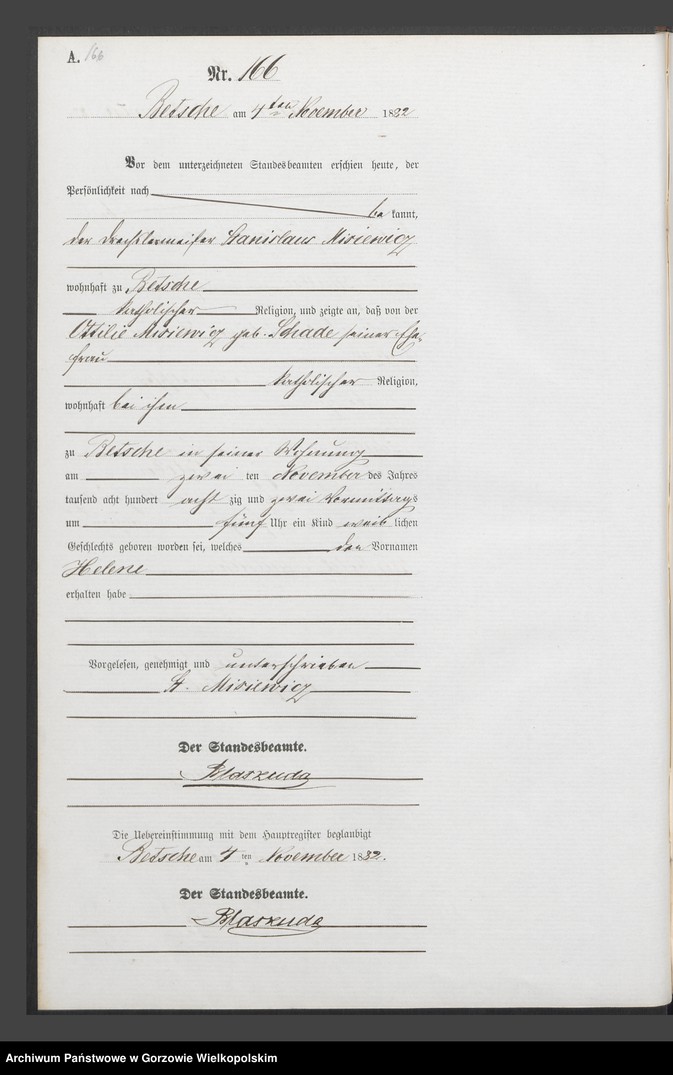 A. 166
Nr. 166
Betsche am 4ten November 1882
Vor dem unterzeichneten Standesbeamten erschien heute, der
Persönlichkeit nach
be kannt,
der Drechslermeister Stanislaus Misiewicz
wohnhaft zu Betsche
katholischer Religion, und zeigte an, daß von der
Ottilie Misiewicz geb. Schade seiner Ehe-
frau
katholischer Religion,
wohnhaft bei ihm
zu Betsche in seiner Wohnung
am zwei ten November des Jahres
tausend acht hundert acht zig und zwei Vormittags
um fünf Uhr ein Kind weib lichen
Geschlechts geboren worden sei, welches den Vornamen
Helene
erhalten habe
Vorgelesen, genehmigt und unterschrieben
St. Misiewicz
Der Standesbeamte.
Die Uebereinstimmung mit dem Hauptregister beglaubigt
Betsche am 4 ten November 1882.
Der Standesbeamte.
Archiwum Państwowe w Gorzowie Wielkopolskim